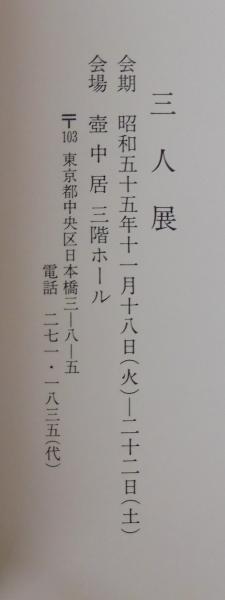 三人展
会期 昭和五十五年十一月十八日(火)―二十二日(土)
会場 壺中居 三階ホール
〒103 東京都中央区日本橋三―八―五
電話 二七一・一八三五(代)